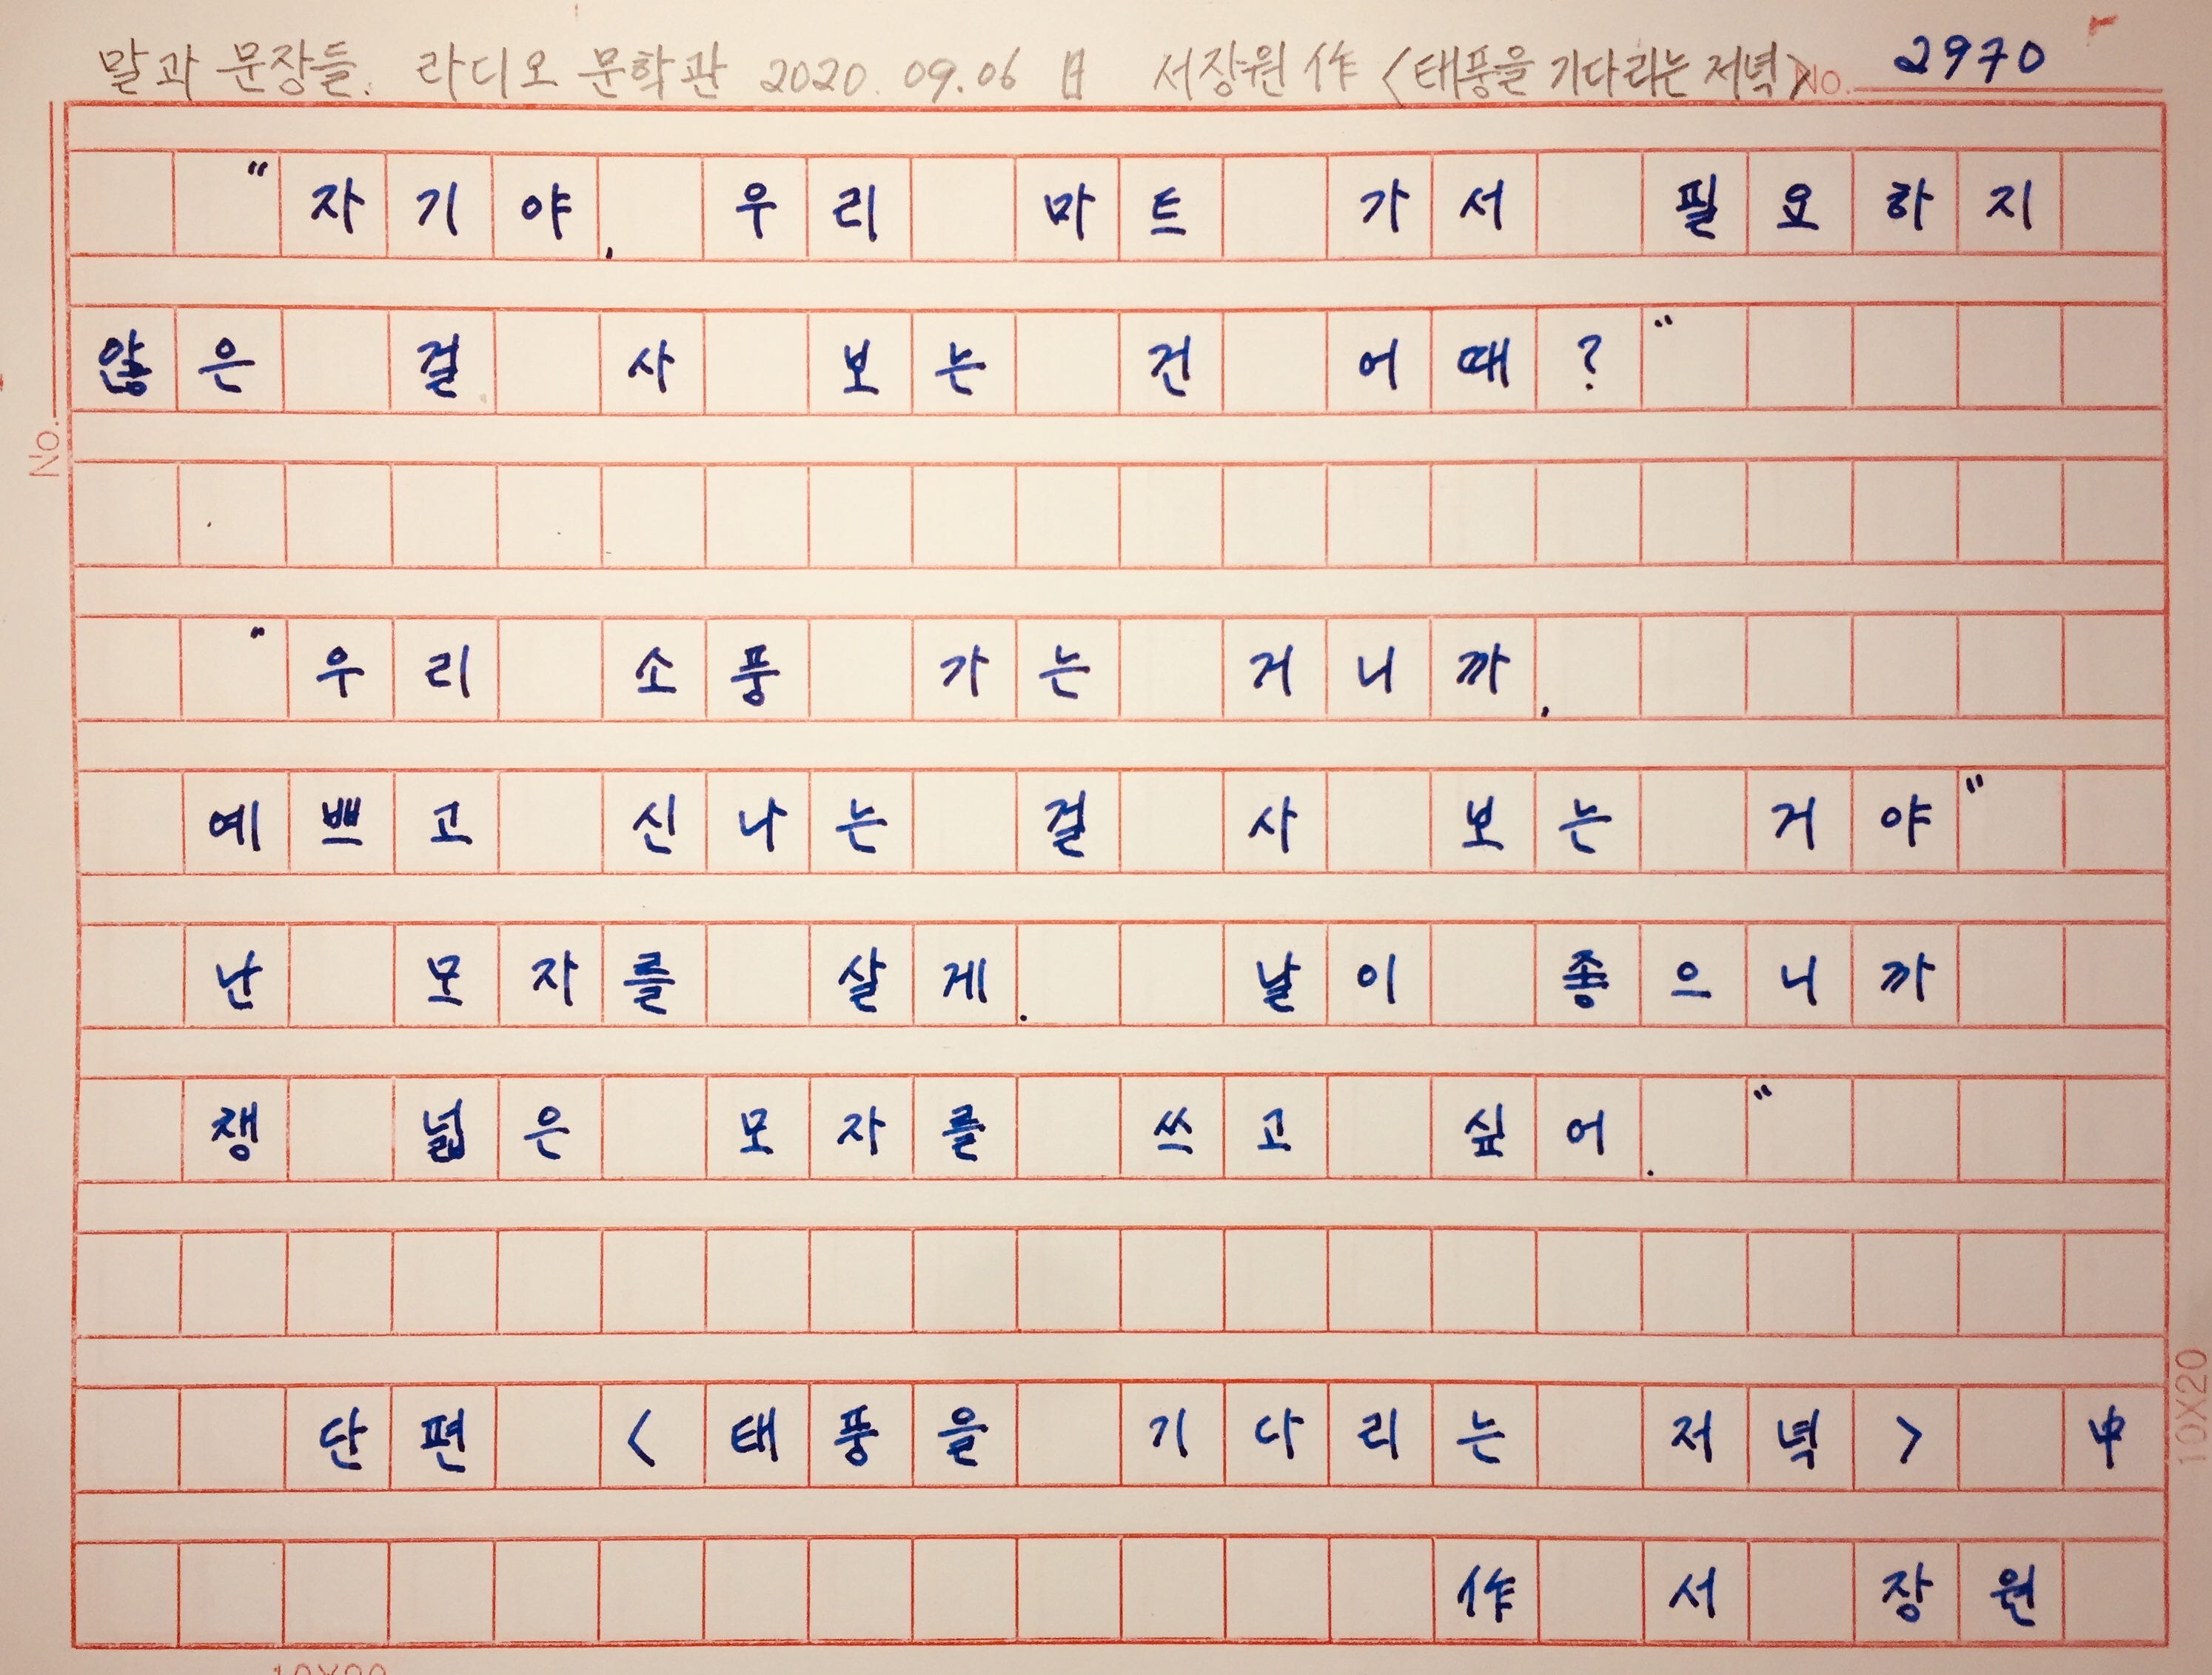 말과 문장들. 라디오 문학관 2020. 09.06 日 서장원 作 <태풍을 기다리는 저녁> No. 2970
"자기야. 우리 마트 가서 필요하지
않은 걸 사 보는 건 어때?"
No.
"우리 소풍 가는 거니까.
예쁘고 신나는 걸 사 보는 거야"
난 모자를 살게. 날이 좋으니까
챙 넓은 모자를 쓰고 싶어."
단편 <태풍을 기다리는 저녁> 中
作 서 장원
10X20
10X20